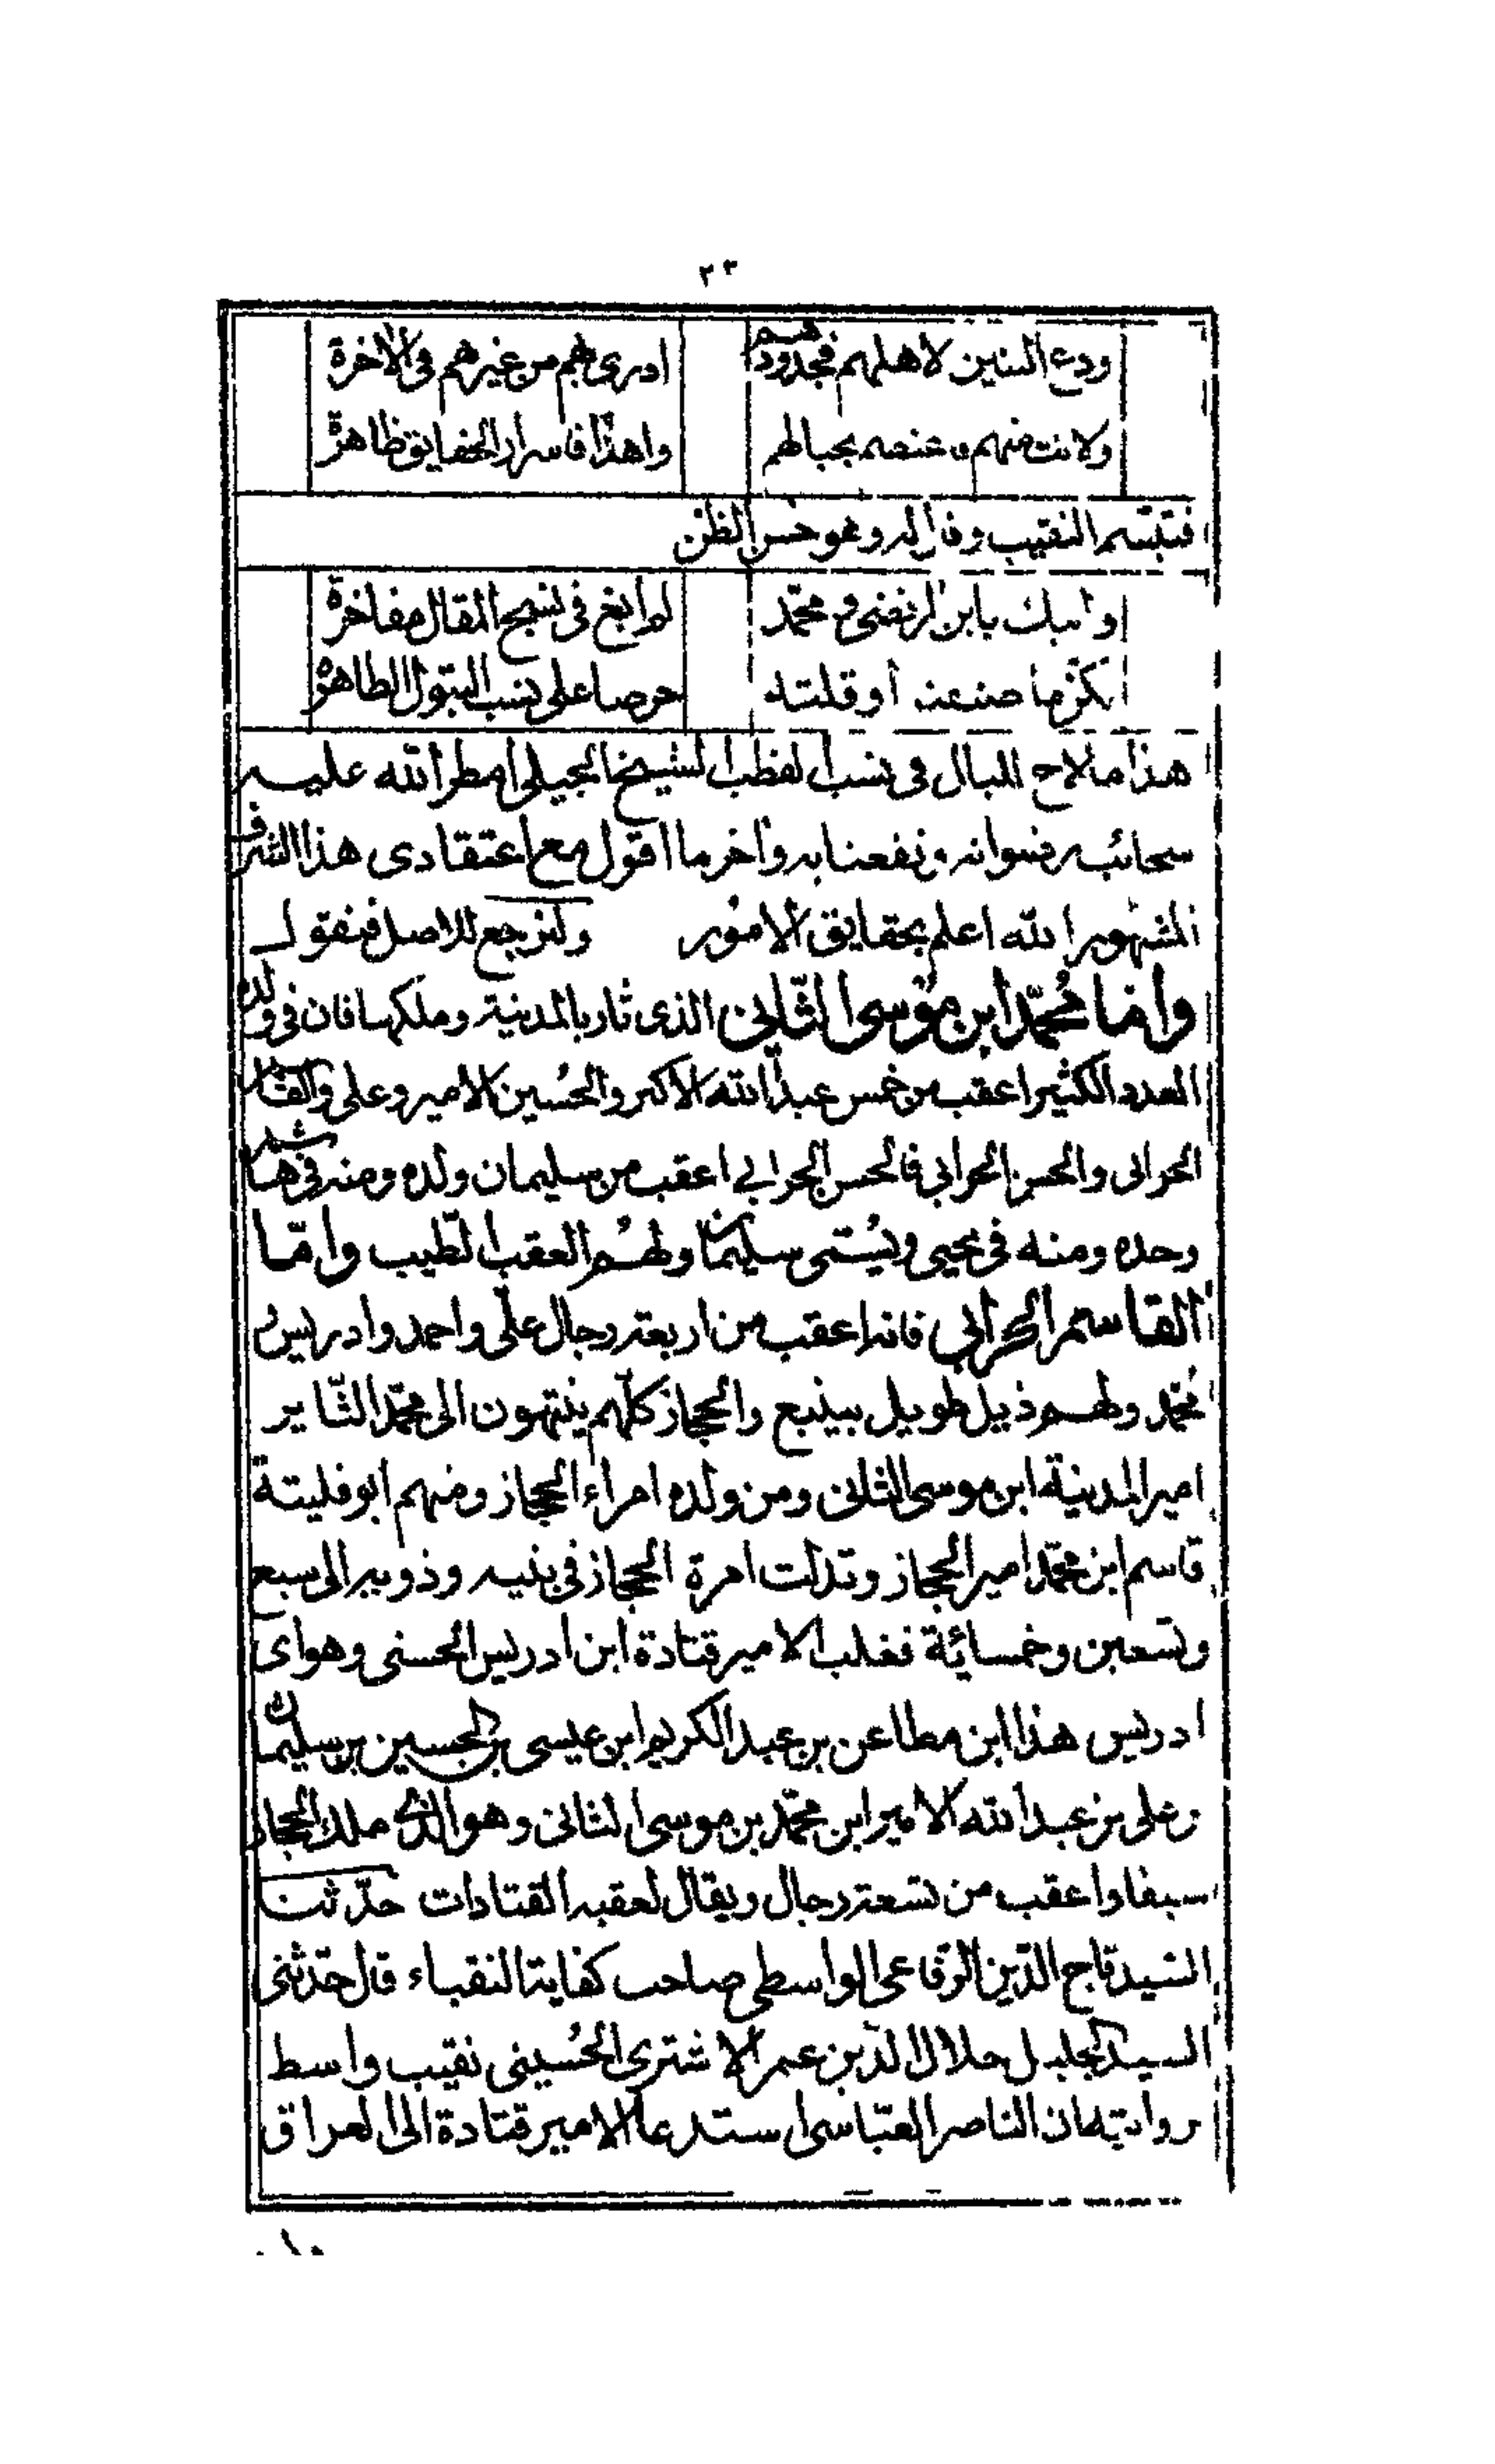 ٢٣
ودع البنين لاهلهم فجدودهم ادرى بهم من غيرهم فى الاخرة
ولانت منهم معتصم بحبالهم واهدأ فاسرار الحقايق ظاهرة
فتبسم النقيب وقال له وهو حسن الظن
وابيك يابن المرتضى ومحمد لم ابغ فى نسج المقال مفاخرة
لكن ما صنعت أو قلته حرصا على نسب البتول الطاهرة
هذا ما لاح للبال فى نسب القطب الشيخ الجيلى امطر الله عليه
سحائب رضوانه ونفعنا به وآخر ما اقول مع اعتقادى هذا الشرف
المشهور الله اعلم بحقايق الامور ولنرجع للاصل فنقول
واما محمّد ابن موسى الثّانى الذى ثار بالمدينة وملكها فان فى ولده
العدد الكثير اعقب من خمس عبد الله الاكبر والحسين الامير وعلى والقاسم
الحرانى والحسن الحرابى فالحسن الحرابى اعقب من سليمان ولده ومنه فى هاشم
وحده ومنه فى يحيى ويسمى سليمان ولهم العقب الطّيب وامّا
القاسم الحرابى فانه اعقب من اربعة رجال علىّ واحمد وادريس و
محمّد ولهم ذيل طويل بينبع والحجاز كلّهم ينتهون الى محمّد الثّاير
امير المدينة ابن موسى الثانى ومن ولده امراء الحجاز ومنهم ابو فليتة
قاسم ابن محمّد امير الحجاز وتدلت امرة الحجاز فى بنيه وذويه الى سبع
وتسعين وخمسائة فغلب الامير قتادة ابن ادريس الحسنى وهو اى
ادريس هذا ابن مطاعن بن عبد الكريم ابن عيسى بن الحسين بن سليمان
بن على بن عبد الله الامير ابن محمّد بن موسى الثانى وهو الذى ملك الحجاز
سيفا واعقب من تسعة رجال ويقال لعقبه القتادات حدّثنا
السّيد تاج الدّين الرّفاعى الواسطى صاحب كفاية النقباء قال حدّثنى
السيد الجليل جلال الدّين عمر الاشترى الحُسينى نقيب واسط
بروايته ان الناصر العبّاسى استدعا الامير قتادة الى العراق